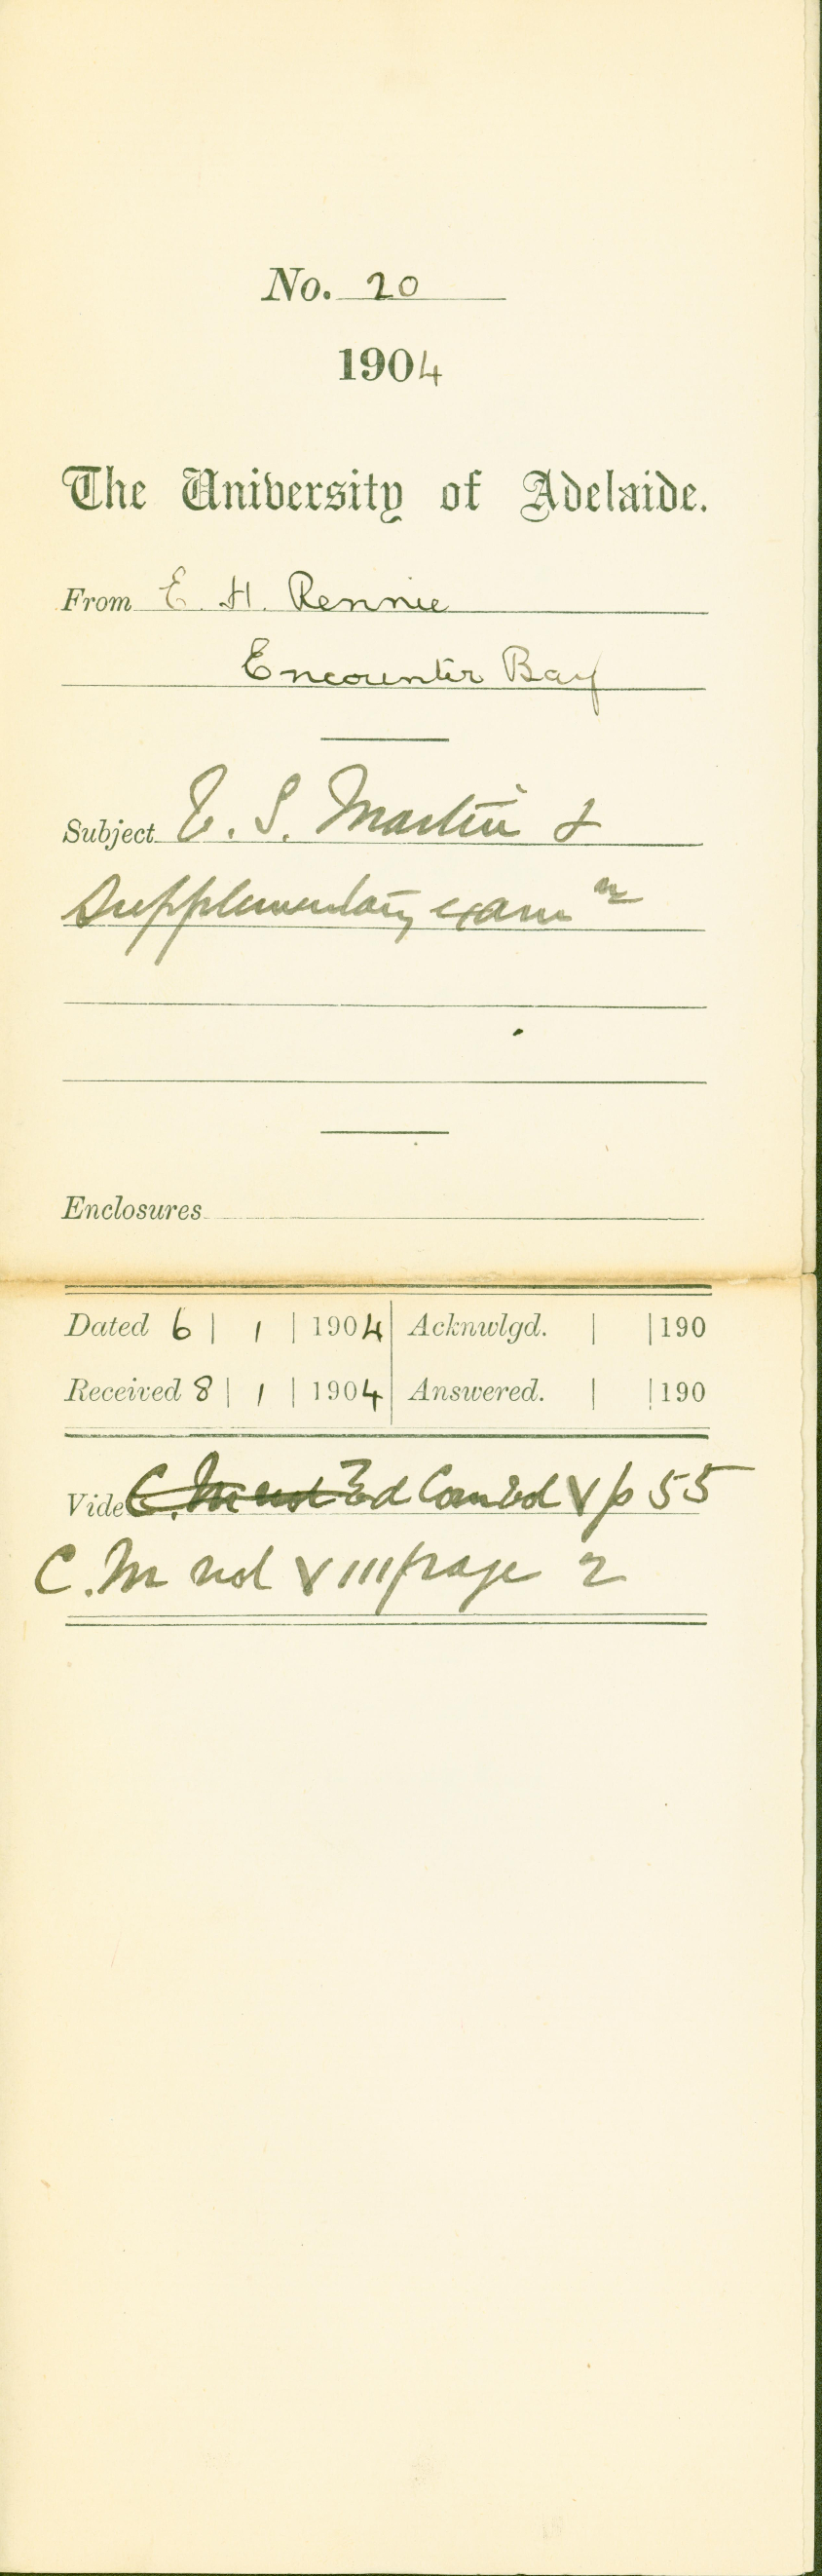 No. 20
1904
The University of Adelaide.
From E. H. Rennie
Encounter Bay
Subject E. S. Martin &
Supplementary exam n
Enclosures
Dated 6 | 1 | 1904 | Acknwlgd. | | 190
Received 8 | 1 | 1904 | Answered. | | 190
Vide C.M vol Ed Com vol V p 55
C.M vol VIII page 2